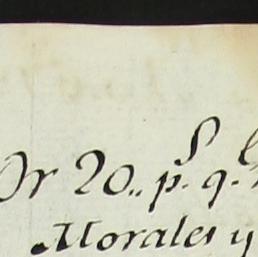 Or 20,, p.s q.
Morales y